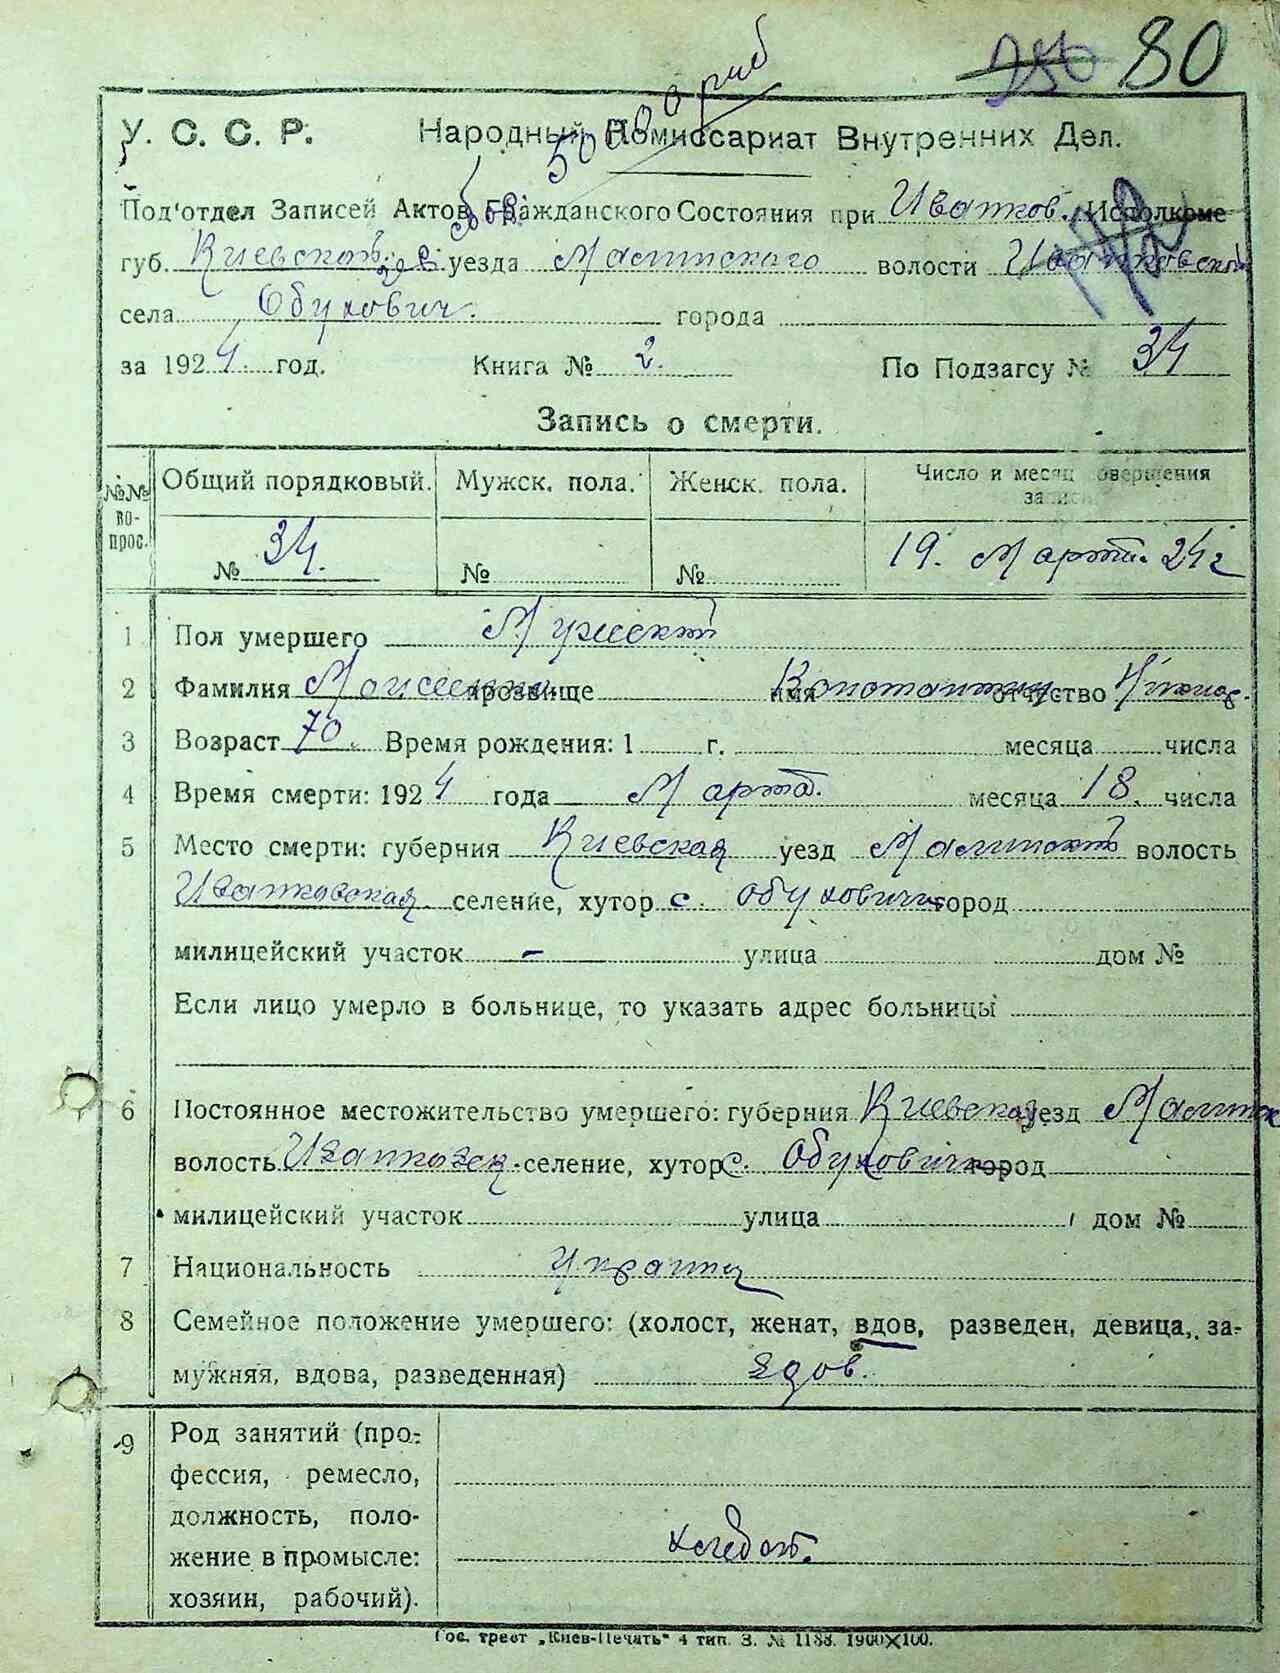 80
У. С. С. Р. Народный Комиссариат Внутренних Дел.
Под'отдел Записей Актов Гражданского Состояния при Иванков. Исполкоме
губ. Киевской уезда Малинского волости Иванковской
села Обухович. города
за 1924. год. Книга № 2. По Подзагсу № 34
Запись о смерти.
№№ во-прос. Общий порядковый. Мужск. пола. Женск. пола. Число и месяц совершения записи
№ 34. № № 19. Марта. 24 г
1 Пол умершего Мужской
2 Фамилия прозвище имя Константин отчество
3 Возраст 70. Время рождения: 1 г. месяца числа
4 Время смерти: 1924 года Марта. месяца 18. числа
5 Место смерти: губерния Киевская уезд Малинский волость
Иванковская селение, хутор с. Обуховичи город
милицейский участок - улица дом №
Если лицо умерло в больнице, то указать адрес больницы
6 Постоянное местожительство умершего: губерния Киевская уезд Малинск
волость Иванковск. селение, хутор с. Обуховичи город
милицейский участок улица дом №
7 Национальность Украинец
8 Семейное положение умершего: (холост, женат, вдов, разведен, девица, за-
мужняя, вдова, разведенная) вдов.
9 Род занятий (про-
фессия, ремесло,
должность, поло-
жение в промысле:
хозяин, рабочий).
хлебоп.
Гос. трест „Киев-Печать" 4 тип. З. № 1188. 1900×100.